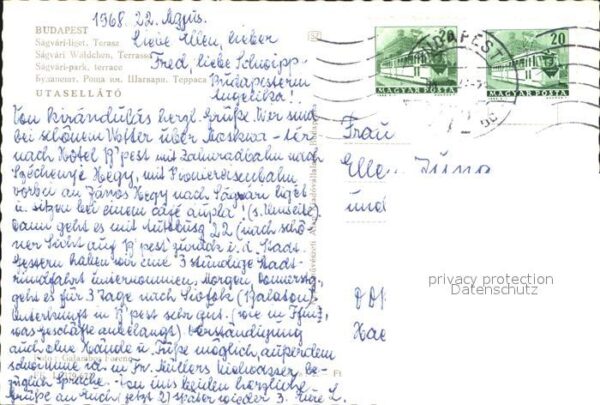 BUDAPEST
Ságvári-liget, Terasz
Ságvári Wäldchen, Terrasse
Ságvári-park, terrace
Будапешт. Роща им. Шагвари. Терраса
UTASELLÁTÓ
1968. 22. Május.
Liebe Ellen, lieber
Fred, liebe
Budapestern
Angelika!
Von kirándulás herzl. Grüße. Wir sind
bei schönem Wetter über Moskwa-tér
nach Hótel B'pest mit Zahnradbahn nach
Széchenyi Hegy, mit Pioniereisenbahn
vorbei an János Hegy nach Ságvári liget
u. sitzen bei einem café
dann geht es mit Autobus 22 (nach schö-
ner Sicht auf B'pest zurück i. d. Stadt.
Gestern haben wir eine 3 stündige Stadt-
rundfahrt unternommen, Morgen, Donnerstg,
geht es für 3 Tage nach Siofok (Balaton).
Unterkunft in B'pest sehr gut. (wie in
was geschäfte anbelangt) Verständigung
auch ohne Hände u. Füße möglich, außerdem
schwimme ich in Fr. Kielwasser be-
züglich Sprache. Von uns beiden herzliche
Grüße an Euch (jetzt 2) später wieder 3. Eure L.
Foto: Galambos Ferenc
20
20
MAGYAR POSTA
MAGYAR POSTA
BUDAPEST
72
Frau
Ellen
und
privacy protection
Datenschutz
DDR